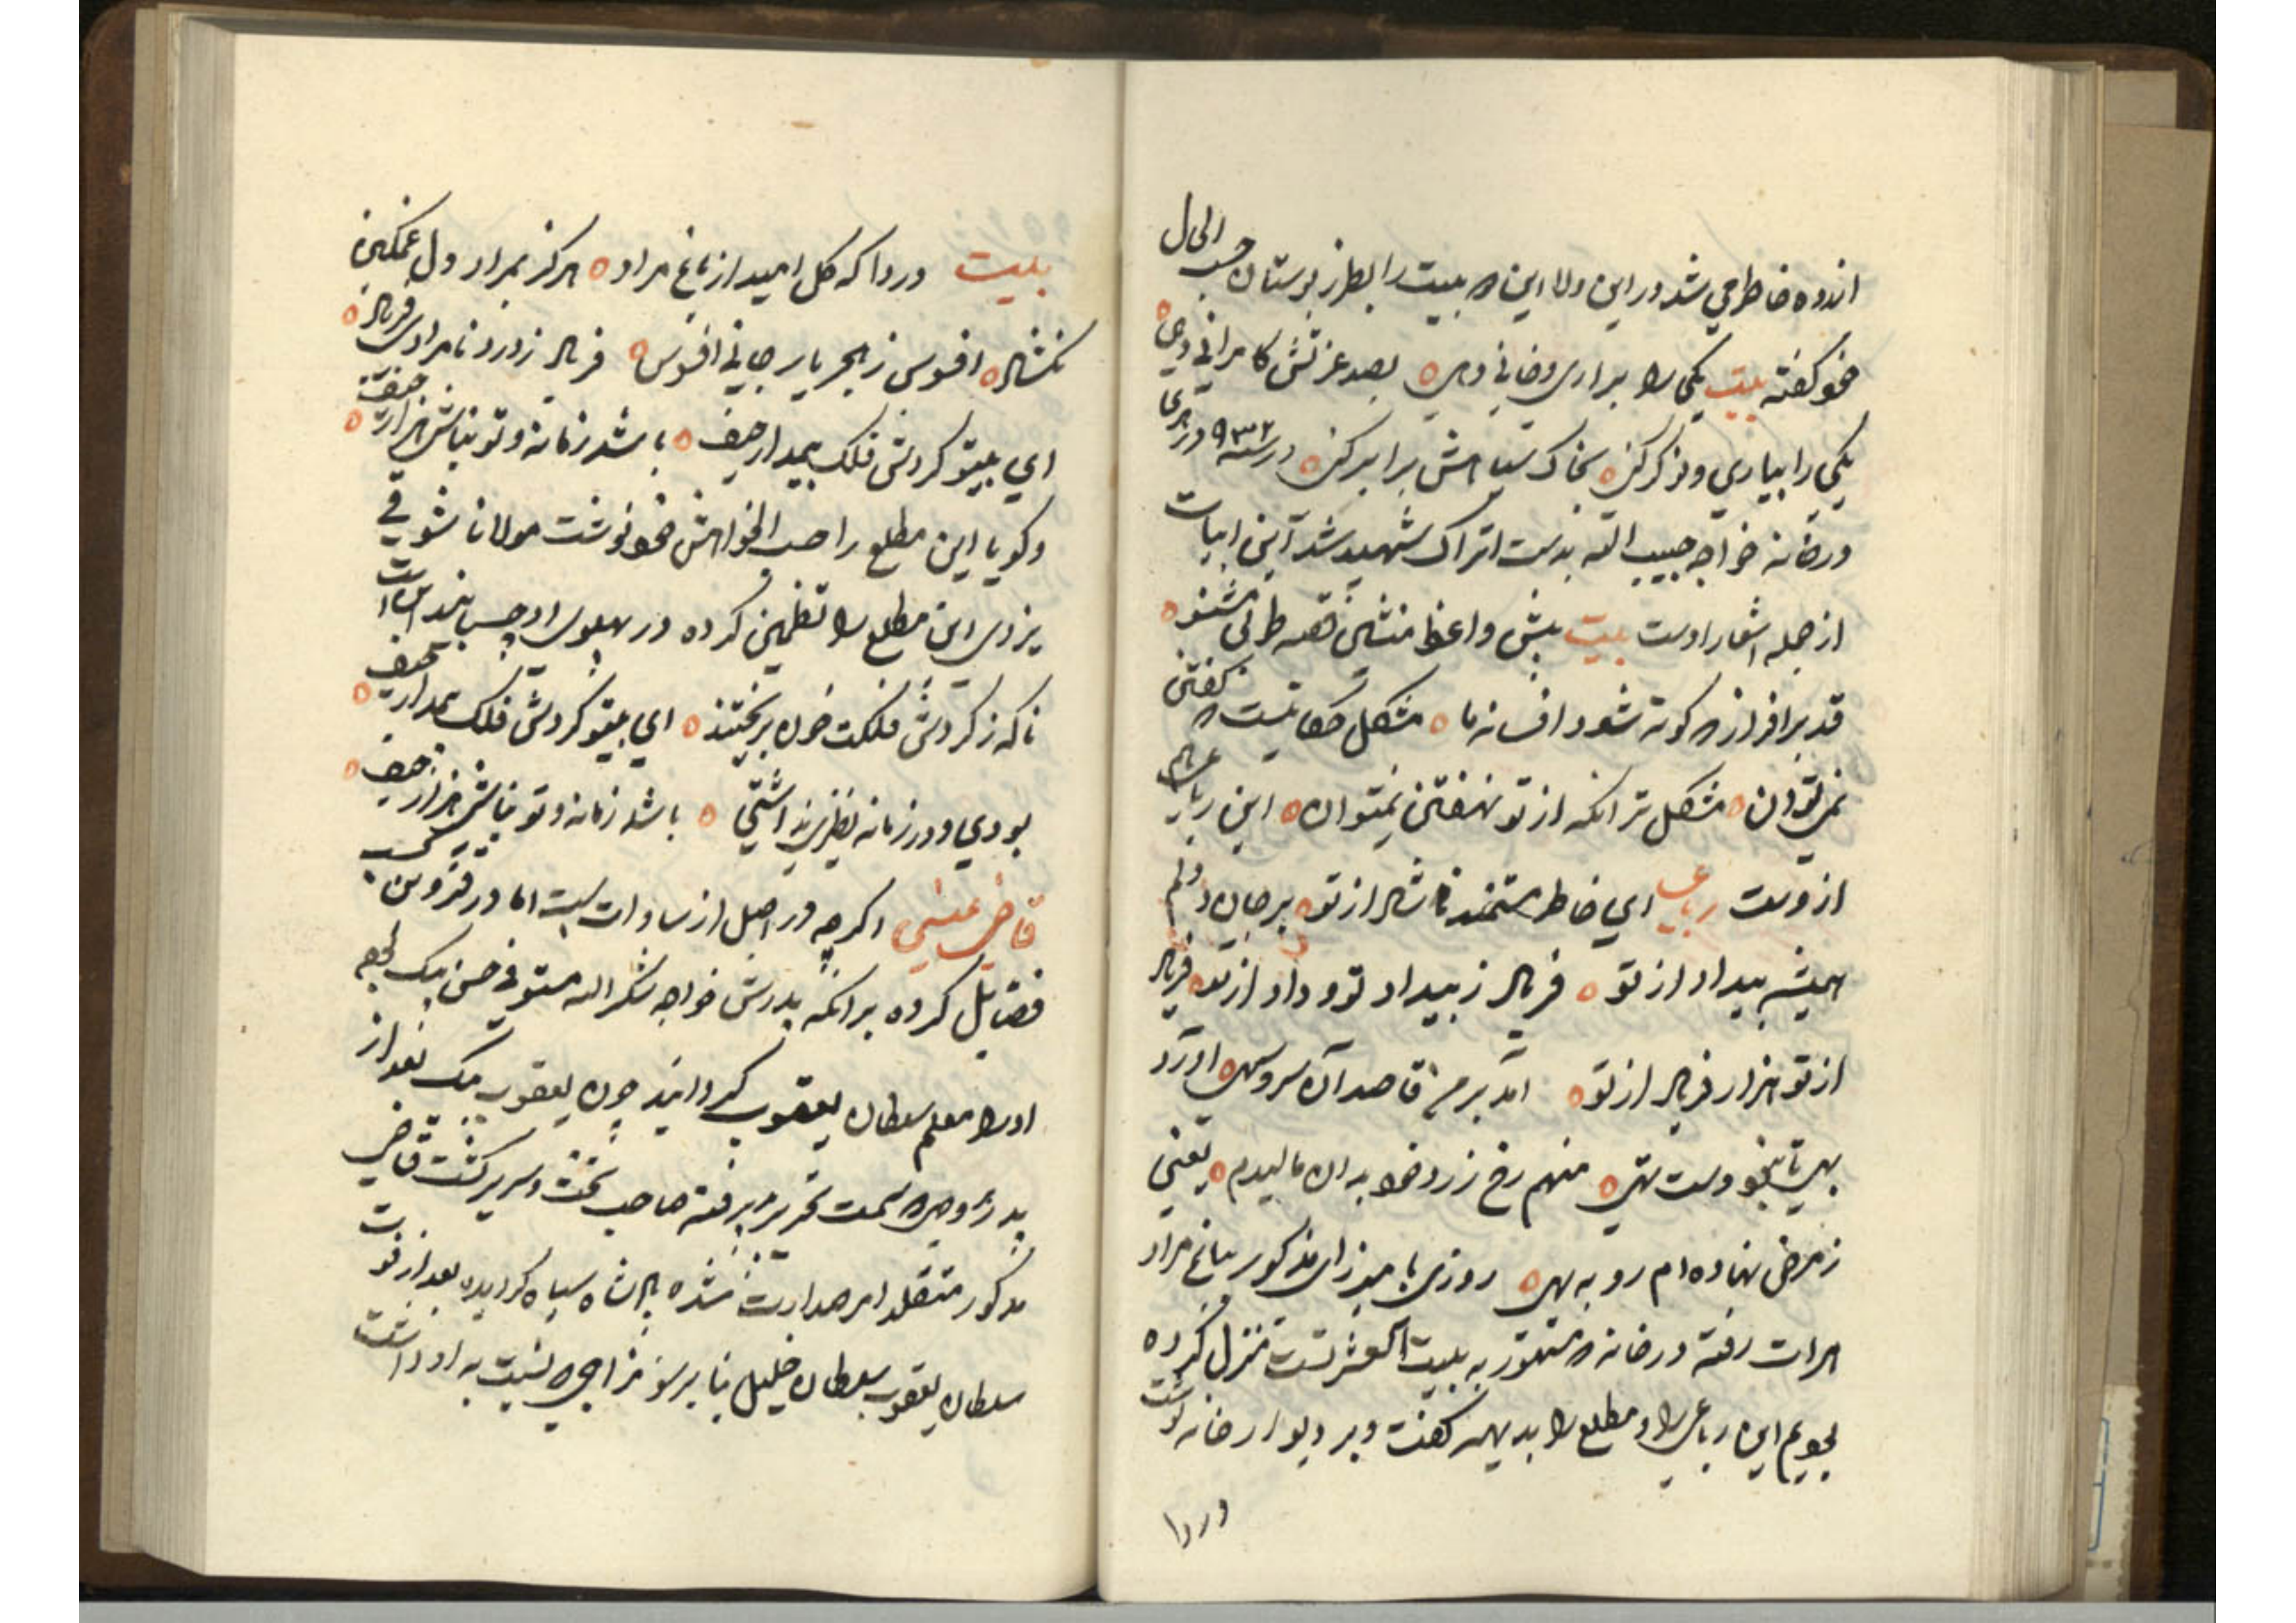 اندوه خاطر می شد در این ولا این ۵ بیت را بطرز بوستان حسب الحال
خود گفته بیت یکی را براری و خانی دهی بصد عزتش کامرانی دهی
یکی را بیاری و نوکر کنی بخاک سیاهش برابر کنی در سنه ۹۳۲ در هری
در خانه خواجه حبیب الله بدست اتراک شهید شد این ابیات
از جمله اشعار اوست بیت پیش واعظ منشین قصه طوبی مشنو
قد برافراز که کوته شود افسانه ما مشکل حکایتیست که گفتن
نمی توان مشکل تر انکه از تو نهفتن نمیتوان این رباعی هم
از وست رباعی ای خاطر مستمند ناشاد از تو بر جان و دلم
همیشه بیداد از تو فریاد ز بیداد تو و داد از تو فریاد
از تو هزار فریاد از تو امد بر من قاصد آن سرو سهی اورد
بهی تا نبود دست تهی منهم رخ زرد خود به ان مالیدم یعنی
ز مرض نهاده ام رو به بهی روزی با میرزای مذکور بباغ مراد
هرات رفته در خانه که مشهور به بیت العشرتست منزل کرده
بودیم این رباعی را و مطلع را بدیهه گفت و بر دیوار خانه نوشت
دردا
بیت دردا که کل امید از باغ مراد هرکز بمراد دل غمکین
نکشاد افسوس ز هجر یار جانی افسوس فریاد ز درد نامرادی فریاد
ای بیتو کردش فلک بیمدار حیف باشد زمانه و تو نباشی هزار حیف
و کویا این مطلع را حسب الخواهش خود نوشت مولانا شوقی
یزدی این مطلع را تظمین کرده در پهلوی او چسبانید ابیات
ناکه ز کردش فلکت خون بریختند ای بیتو کردش فلک بیمدار حیف
بودی و در زمانه نظیری نداشتی باشد زمانه و تو نباشی هزار حیف
قاضی عیسی اکرچه در اصل از سادات است اما در قزوین کسب
فضایل کرده برانکه پدرش خواجه شکرالله مستوفی حسن بیک بود
او را معلم سلطان یعقوب کردانید چون یعقوب بیک بعد از
پدر بر وجهی که سمت تحریر پذیرفته صاحب تخت و سریر کشت قاضی
مذکور متقلد امر صدارت شده پادشاه سپاه کردیده بعد از فوت
سلطان یعقوب سلطان خلیل بنابر سوء مزاجی که نسبت به او داشت